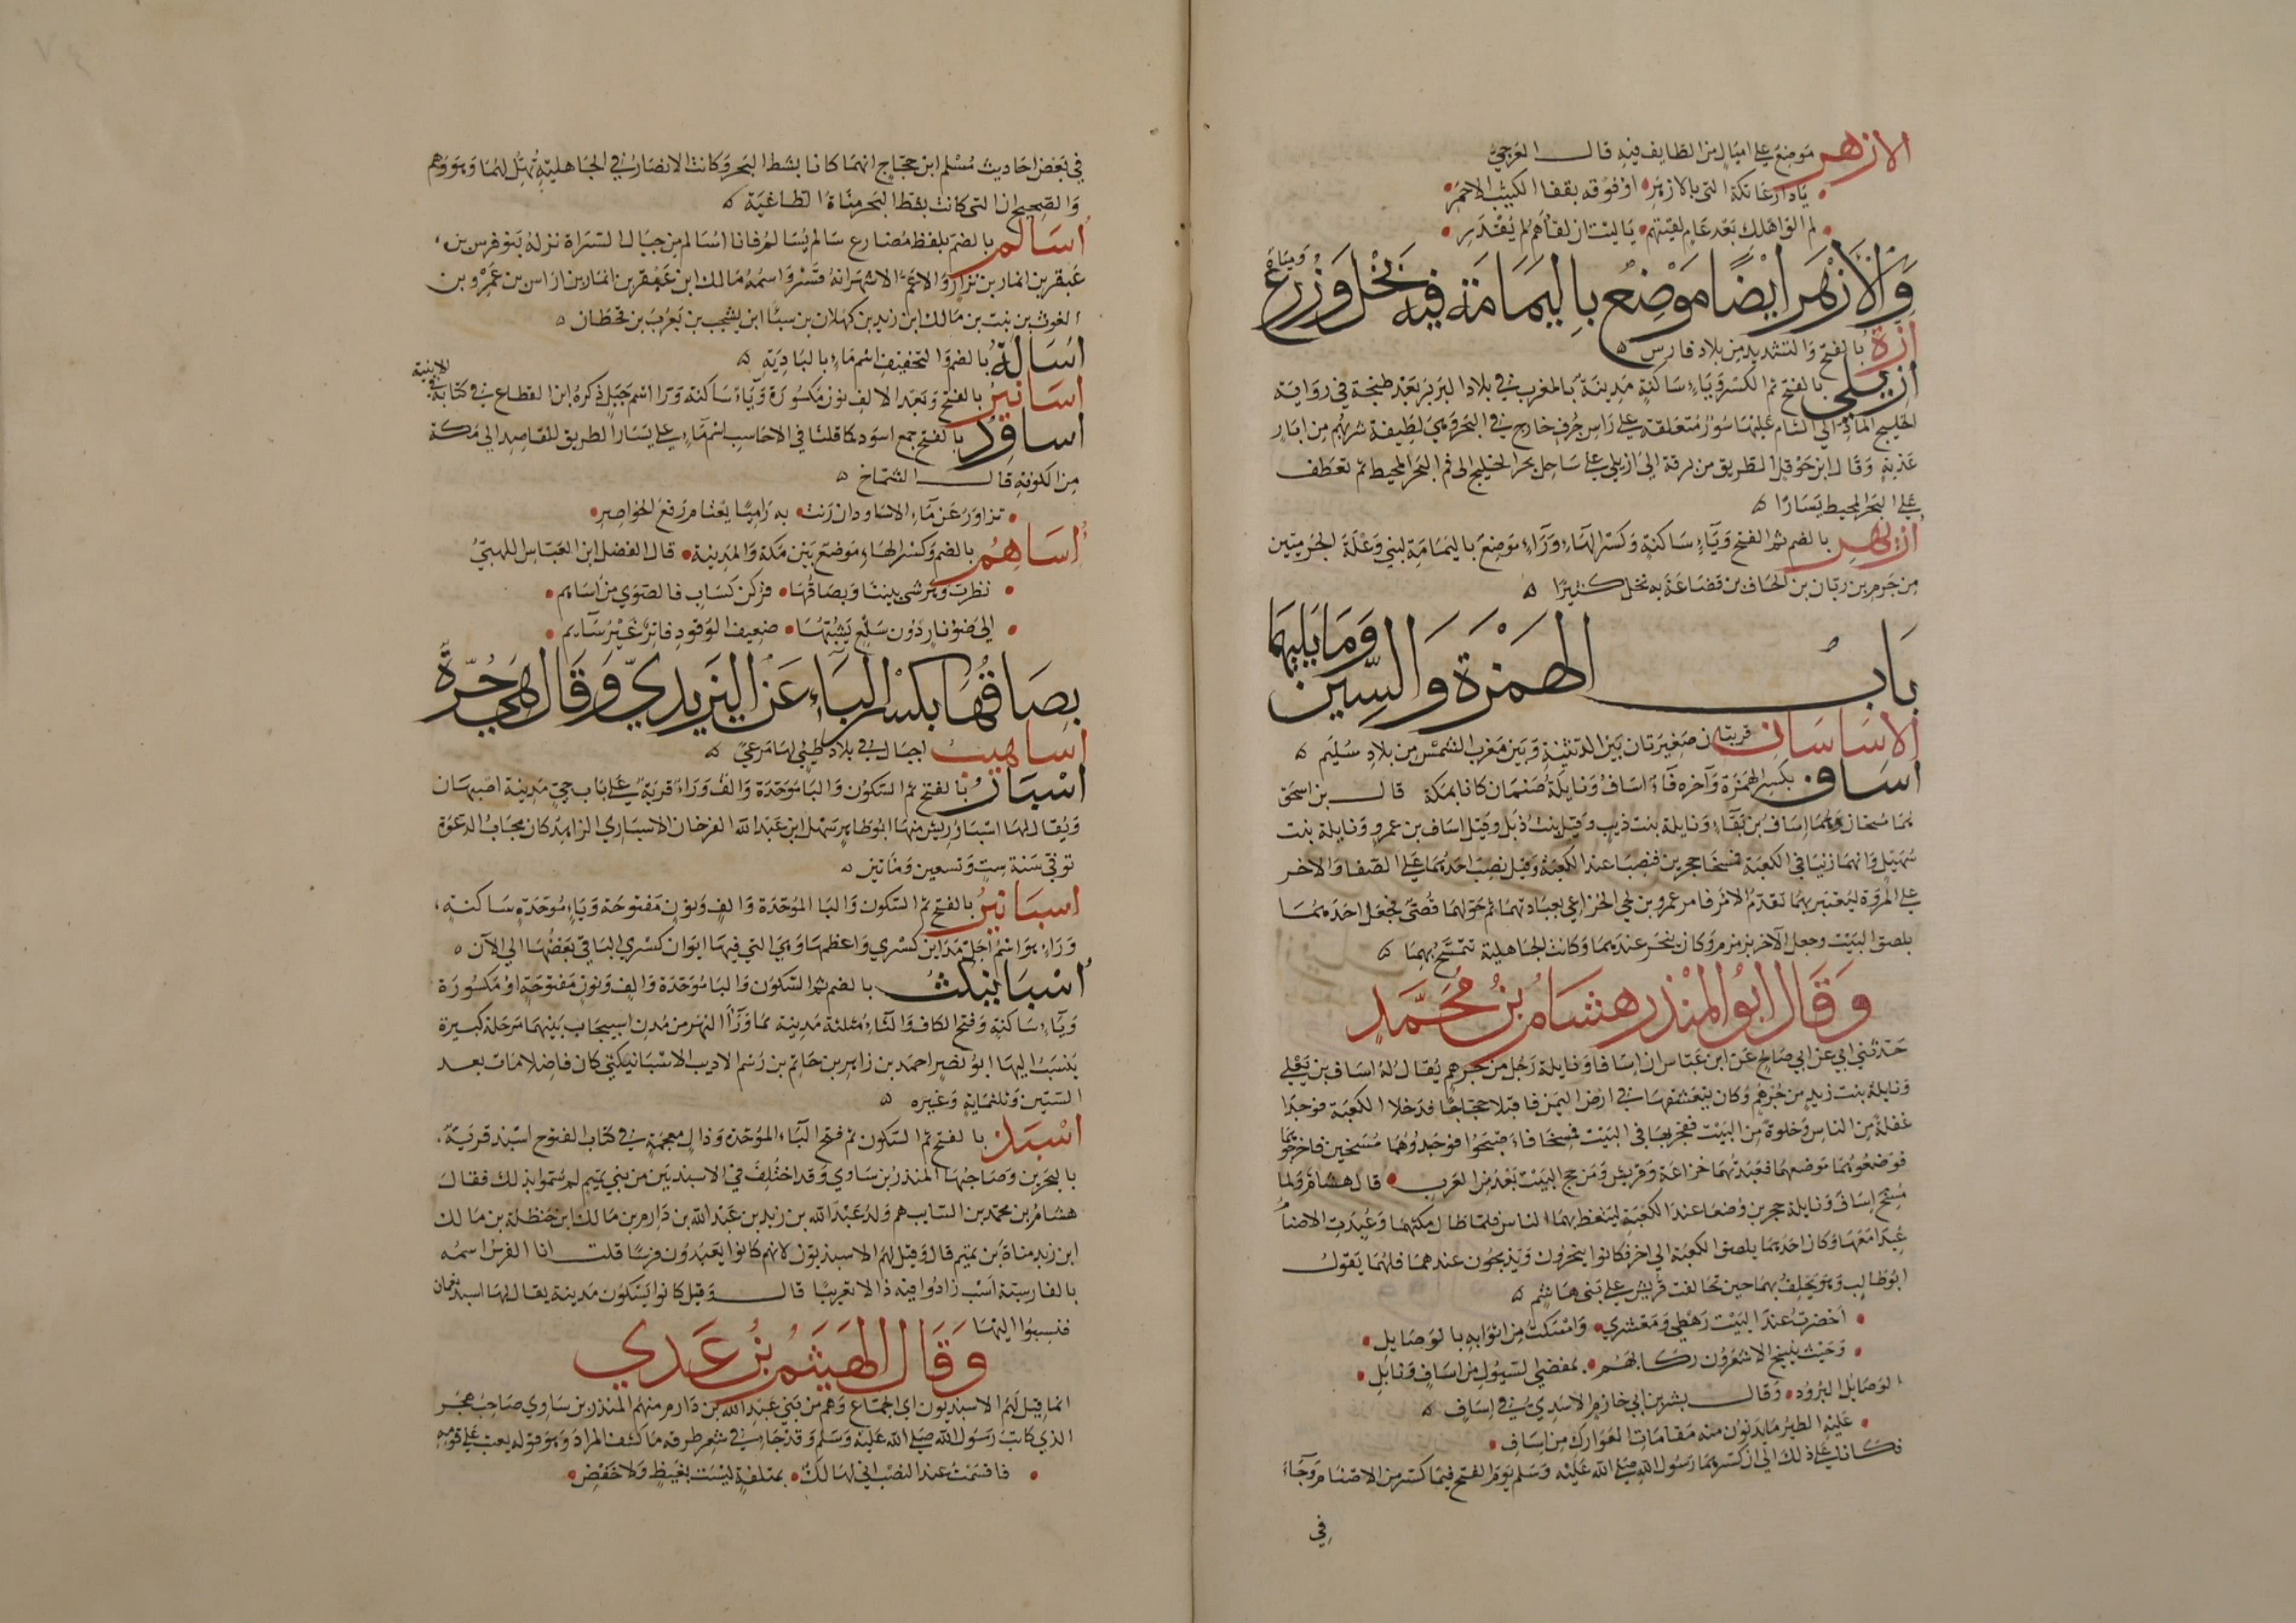 الازهر موضع على اميال من الطايف فيه قال العرجي
يا دار عاتكة التي بالازهر او فوقه بقفا الكثيب الاحمر
لم الق اهلك بعد عام لقيتهم يا ليت ان لقاهم لم يقدر
وَالأزْهَر ايْضًا مَوْضِعٌ بِاليَمَامَة فيه نَخْل وَزُرع وَمِيَاه
ازة بالفتح والتشديد من بلاد فارس
ازيلي بالفتح ثم الكسر وياء ساكنة مدينة بالمغرب في بلاد البربر بعد طنجة في رواية
الخليج الماد الى الشام عليها سور متعلقة على راس جرف خارج في البحر وهي لطيفة شربهم من ابار
عذبة وقال ابن حوقل الطريق من برقة الى ازيلي على ساحل بحر الخليج الى فم البحر المحيط ثم تعطف
على البحر المحيط يسارا
ازيهر بالضم ثم الفتح وياء ساكنة وكسر الهاء وراء موضع باليمامة لبني وعلة الجرميين
من جرم بن ربان بن الحاف بن قضاعة به نخل كثير
بَابُ الهَمْزَة وَالسِّين وَمَا يَليهما
الاساسان قريتان صغيرتان بين الدثينة وبين مغرب الشمس من بلاد سليم
اساف بكسر الهمزة وآخره فاء اساف ونايلة صنمان كانا بمكة قال بن اسحق
هما مسخان وهما اساف بن بغاء ونايلة بنت ذيب وقيل بنت ذبل وقيل اساف بن عمرو ونايلة بنت
سهيل وانهما زنيا في الكعبة فمسخا حجرين فنصبا عند الكعبة وقيل نصب احدهما على الصفا والاخر
على المروة ليعتبر بهما تقدم الامر فامر عمرو بن لحي الخزاعي بعبادتهما ثم حولهما قصي فجعل احدهما
بلصق البيت وجعل الآخر بزمزم وكان ينحر عندهما وكانت الجاهلية تتمسح بهما
وَقَالَ ابُوا لمُنْذِر هشَامُ بْنُ مُحَمَّد
حدثني ابي عن ابي صالح عن ابن عباس ان اسافا ونايلة رجل من جرهم يقال له اساف بن يعلي
ونايلة بنت زيد من جرهم وكان يتعشقها في ارض اليمن فاقبلا حجاجا فدخلا الكعبة فوجدا
غفلة من الناس وخلوة من البيت ففجر بها في البيت فمسخا فاصبحوا فوجدوهما مسخين فاخرجوهما
فوضعوهما موضعهما فعبدتهما خزاعة وقريش ومن حج البيت بعد من العرب قال هشام ولما
مسخ اساف ونايلة حجرين وضعا عند الكعبة ليتعظ بهما الناس فلما طال مكثهما وعبدت الاصنام
عبدا معها وكان احدهما بلصق الكعبة الى اخر فكانوا ينحرون ويذبحون عندهما فلهما يقول
ابو طالب وهو يحلف بهما حين تحالفت قريش على بني هاشم
احضرت عند البيت رهطي ومعشري وامسكت من اثوابه بالوصايل
وحيث ينيخ الاشعرون ركابهم بمفضى السيول من اساف ونايل
الوصايل البرود وقال بشر بن ابي خازم الاسدي في اساف
عليه الطير ما يدنون منه مقامات العوارك من اساف
فكانا على ذلك الى ان كسرهما رسول الله صلى الله عليه وسلم يوم الفتح فيما كسر من الاصنام وجاء
في
في بعض احاديث مسلم ابن حجاج انهما كانا بشط البحر وكانت الانصار في الجاهلية تهل لهما وهو وهم
والصحيح ان التي كانت بشط البحر مناة الطاغية
اسالم بالضم بلفظ مضارع سالم يسالم فانا اسالم من جبال السراة نزله بنو قسر بن
عبقر بن انمار بن نزار والاعم الاشهر انه قسر واسمه مالك ابن عبقر بن انمار بن اراس بن عمرو بن
الغوث بن نبت بن مالك ابن زيد بن كهلان بن سبا ابن يشجب بن يعرب بن قحطان
اسالة بالضم والتخفيف اسم ماء بالبادية
اسانير بالفتح وبعد الالف نون مكسورة وياء ساكنة ورا اسم جبل ذكره ابن القطاع في كتابه في الابنية
اساود بالفتح جمع اسود كما قلنا في الاحاسب اسم ماء على يسار الطريق للقاصد الى مكة
من الكوفة قال الشماخ
تزاور عن ماء الاساود ان رنت به راميا يعتام رفع الخواصر
اساهم بالضم وكسر الهاء موضع بين مكة والمدينة قال الفضل ابن العباس اللهبي
نظرت وهرشى بيننا وبصاقها فركن كساب فالصوى من اساهم
الى ضوء نار دون سلع يشبها ضعيف الوقود فاتر غير سايم
بِصَاقُهَا بكسْر البَاءِ عَن اليَزيديّ وَقَالَ هي حُرّة
اساهيب اجبال في بلاد طيئ لها مرعى
اسبار بالفتح ثم السكون والبا موحدة والف وراء قرية على باب جي مدينة اصبهان
ويقال لها اسبار ريش منها ابو طاهر سهل ابن عبد الله الفرخان الاسباري الزاهد كان مجاب الدعوة
توفي سنة ست وتسعين ومائتين
اسبانبر بالفتح ثم السكون والبا الموحدة والف ونون مفتوحة وباء موحدة ساكنة
وراء هو اسم اجل مداين كسرى واعظمها وهي التي فيها ايوان كسرى الباقي بعضها الى الآن
اسبانيكث بالضم ثم السكون والبا موحدة والف ونون مفتوحة او مكسورة
وياء ساكنة وفتح الكاف والثاء مثلثة مدينة بما وراء النهر من مدن اسبيجاب بينهما مرحلة كبيرة
ينسب اليها ابو نصر احمد بن زاهر بن حاتم بن رستم الاديب الاسبانيكثي كان فاضلا مات بعد
الستين وثلثماية وغيره
اسبذ بالفتح ثم السكون ثم فتح الباء الموحدة وذال معجمة في كتاب الفتوح اسبذ قرية
بالبحرين وصاحبها المنذر بن ساوي وقد اختلف في الاسبذيين من بني تميم لم سموا بذلك فقال
هشام بن محمد بن السايب هم ولد عبد الله بن زيد بن عبد الله بن دارم بن مالك ابن حنظلة بن مالك
ابن زيد مناة بن تميم قال وقيل لهم الاسبذيون لانهم كانوا يعبدون فرسا قلت انا الفرس اسمه
بالفارسية اسب زادوا فيه ذالا تعريبا قال وقيل كانوا يسكون مدينة يقال لها اسبذ بعمان
فنسبوا اليها
وَقَالَ الهَيْثَمُ بْنُ عَدي
انما قيل لهم الاسبذيون اي الجماع وهم من بني عبد الله بن دارم منهم المنذر بن ساوي صاحب هجر
الذي كاتب رسول الله صلى الله عليه وسلم وقد جاء في شعر طرفة ما كشف المراد وهو قوله يعتب على قومه
فاقسمت عند النصب اني لهالك بمتلفة ليست بغبيط ولا خفض